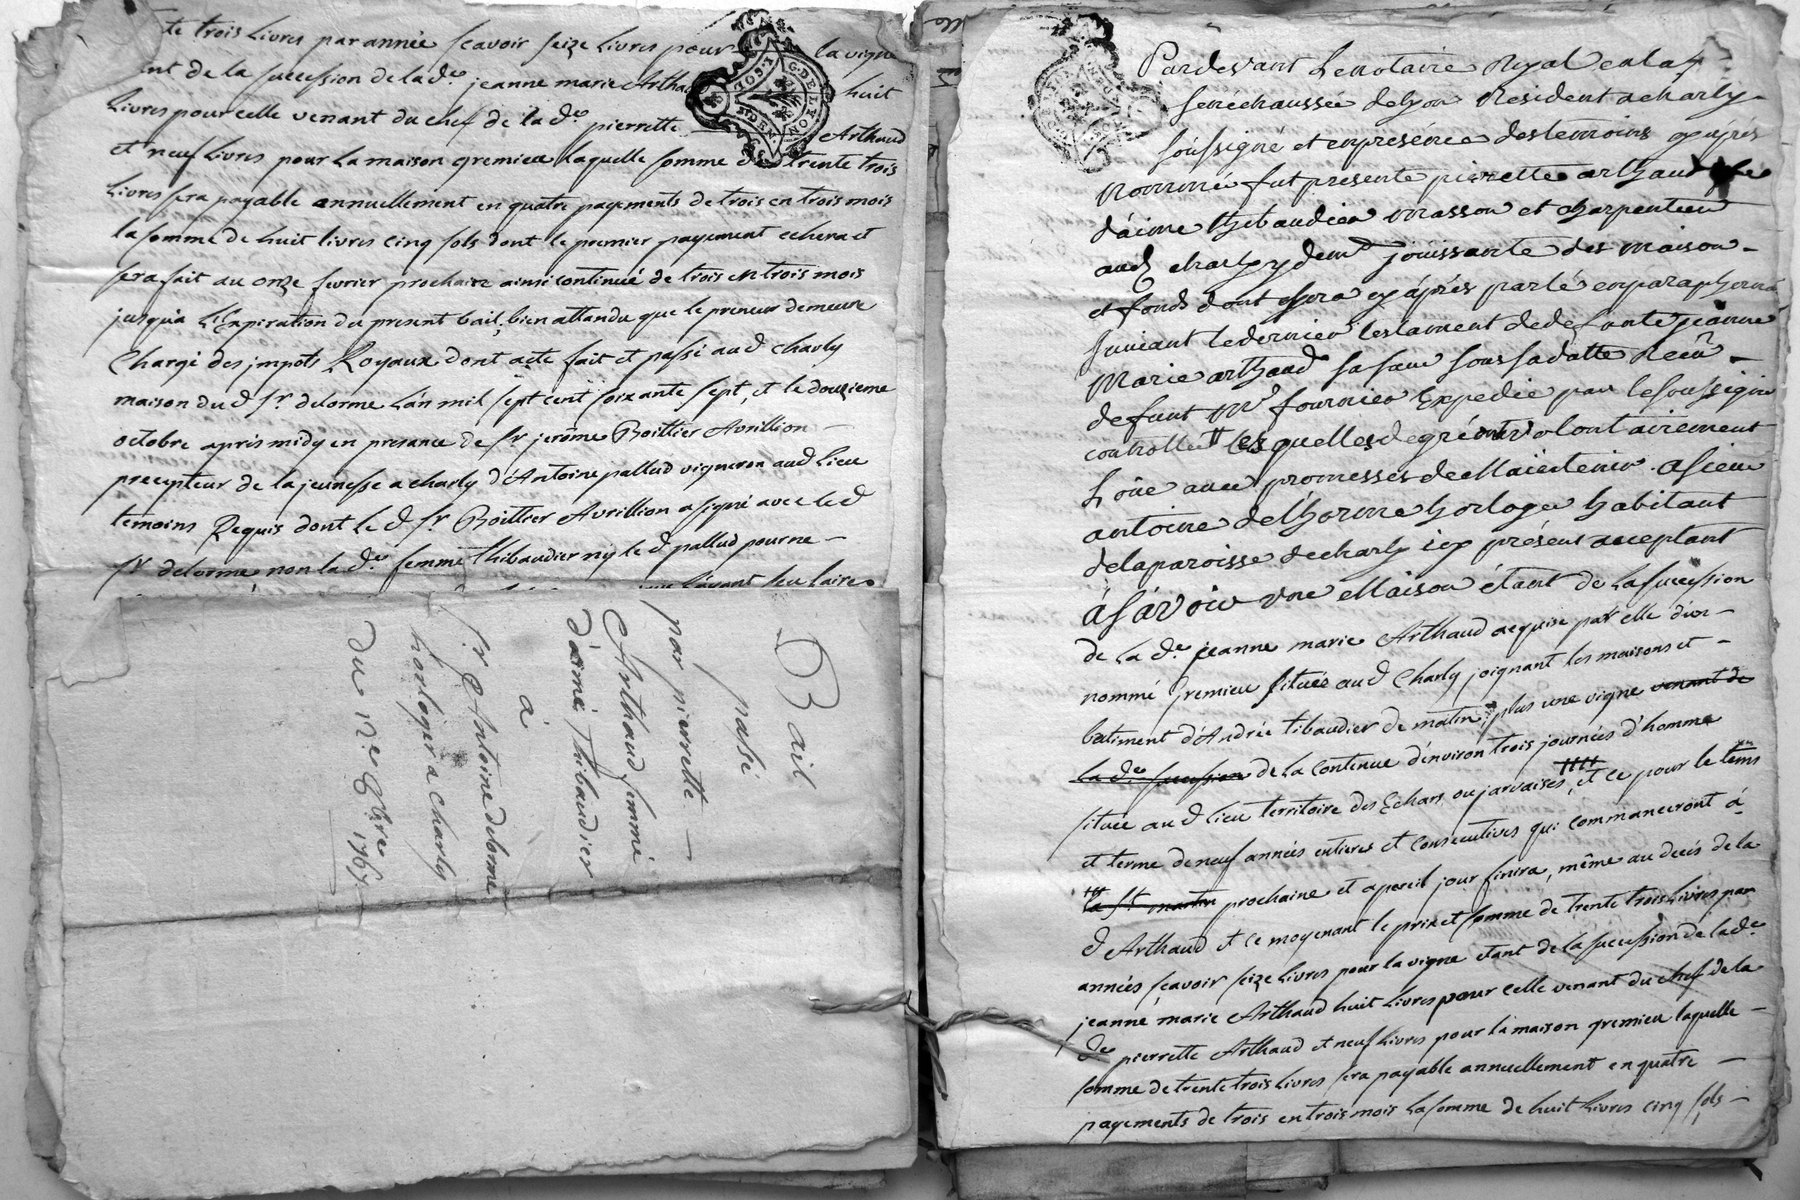 te trois Livres par année scavoir seize livres pour la vigne
ant de la succession de la de. jeanne marie Arthaud huit
Livres pour celle venant du chef de la de. pierrette Arthaud
et neuf Livres pour la maison gremieu laquelle somme de trente trois
Livres sera payable annuellement en quatre payements de trois en trois mois
la somme de huit livres cinq sols dont le premier payement echera et
sera fait au onze fevrier prochaine ainsi continué de trois en trois mois
jusqu'a L'Expiration du present bail, bien attandu que le preneur demeure
Chargé des impots Royaux dont acte fait et passé aud charly
maison dud Sr. delorme L'an mil sept cent soixante sept, et le douzieme
octobre apres midy en presance de Sr jerôme Boittier Avrillion
precepteur de la jeunesse a charly d'Antoine pallud vigneron aud Lieu
temoins Requis dont le d Sr Boittier Avrillion a signé avec le d
Sr delorme, non la de. femme Thibaudier ny le d pallud pour ne
Bail
passé
par pierrette
Arthaud femme
d'aimé Thibaudier
à
Sr Antoine delorme
horloger a charly
du 12e 8bre
1767
G. DE LYON
Pardevant Le notaire Royal en la
senéchaussée de Lyon Resident a charly
soussigné et en presence des temoins cy après
nommé fut presente pierrette arthaud fe
d'aime thibaudier masson et charpentier
aud charly y demt jouissante des maison
et fonds dont sera cy après parlé en paraphernal
suivant le dernier testament de defunte jeanne
Marie arthaud sa sœur sous sa datte Recu
defunt Mr fournier Expedie par le soussigné
controllé lesquelles de gré et volontairement
Loüe avec promesses de Maintenir a sieur
antoine delhorme horloger habitant
de la paroisse de charly icy présent acceptant
àsàvoir une Maison étant de la succession
de la de. jeanne marie Arthaud acquise par elle d'un
nommé Gremieu située aud Charly joignant les maisons et
batiment d'André tibaudier de matin, plus une vigne venant de
la de succession de la contenue d'environ trois journées d'homme
située aud Lieu territoire des Echars ou jarvaises, et ce pour le tems
et terme de neuf années entieres et consecutives qui commanceront à
la St martin prochaine et a pareil jour finira, même au deces de la
d Arthaud et ce moyenant le prix et somme de trente trois Livres par
années scavoir seize Livres pour la vigne etant de la succession de la de.
jeanne marie Arthaud huit Livres pour celle venant du chef de la
de pierrette Arthaud et neuf Livres pour la maison gremieu laquelle
somme de trente trois Livres sera payable annuellement en quatre
payements de trois en trois mois La somme de huit Livres cinq sols